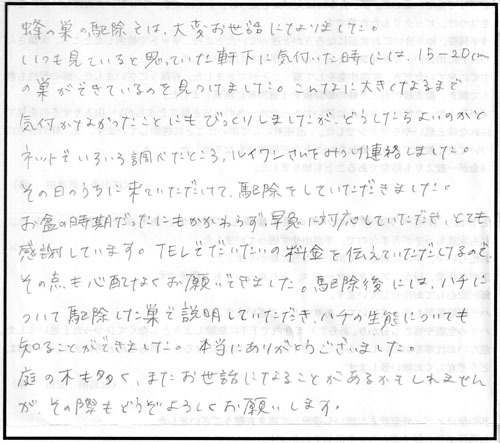 蜂の巣の駆除では、大変お世話になりました。
いつも見ていると思っていた軒下に気付いた時には、15-20cm
の巣ができているのを見つけました。こんなに大きくなるまで
気付かなかったことにもびっくりしましたが、どうしたらよいのかと
ネットでいろいろ調べたところ、ルイワンさんをみつけ連絡しました。
その日のうちに来ていただけて、駆除をしていただきました。
お盆の時期だったにもかかわらず、早急に対応していただき、とても
感謝しています。TELでだいたいの料金を伝えていただしてるので、
その点も心配なくお願いできました。駆除後には、ハチに
ついて駆除した巣で説明していただき、ハチの生態についても
知ることができました。本当にありがとうございました。
庭の木も多く、またお世話になることがあるかもしれません
が、その際もどうぞよろしくお願いします。